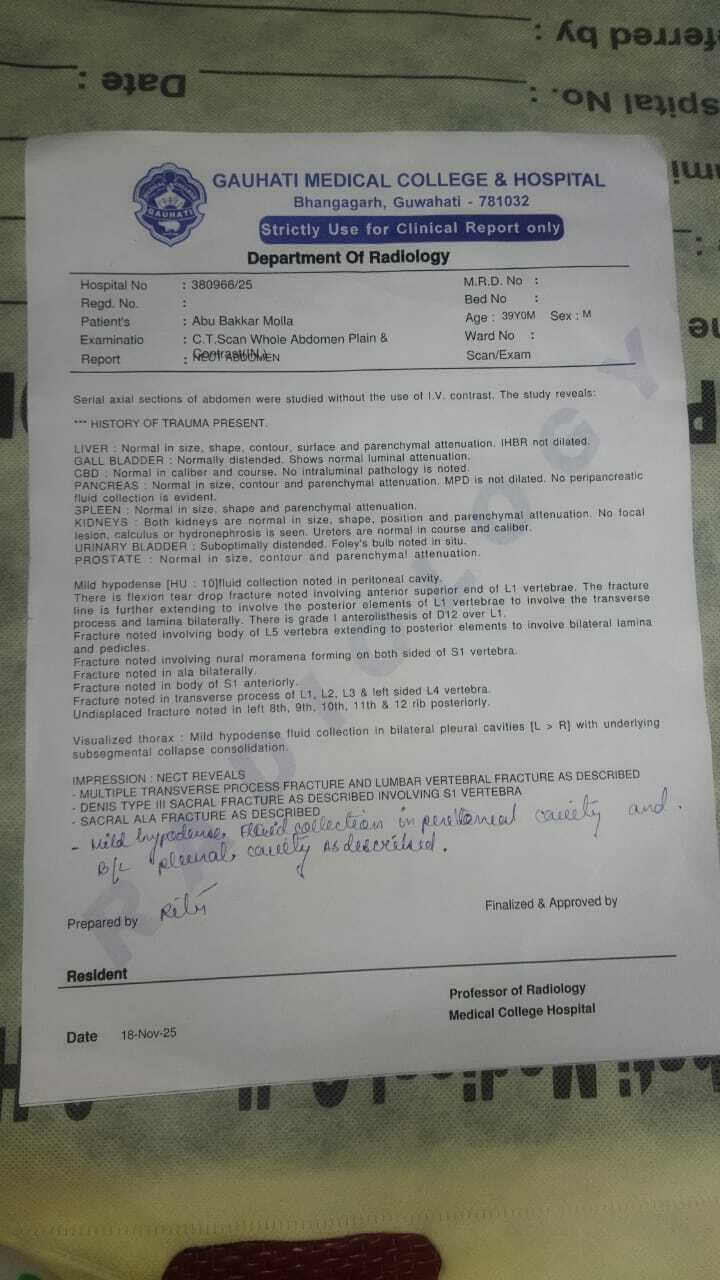 ferred by :
spital No. :
Date :
GAUHATI MEDICAL COLLEGE & HOSPITAL
GAUHATI
Bhangagarh, Guwahati - 781032
Strictly Use for Clinical Report only
Department Of Radiology
Hospital No : 380966/25 M.R.D. No :
Regd. No. : Bed No :
Patient's : Abu Bakkar Molla Age : 39Y0M Sex : M
Examinatio : C.T.Scan Whole Abdomen Plain & Contrast(IN.) Ward No :
Report : NECT ABDOMEN Scan/Exam
Serial axial sections of abdomen were studied without the use of I.V. contrast. The study reveals:
*** HISTORY OF TRAUMA PRESENT.
LIVER : Normal in size, shape, contour, surface and parenchymal attenuation. IHBR not dilated.
GALL BLADDER : Normally distended. Shows normal luminal attenuation.
CBD : Normal in caliber and course. No intraluminal pathology is noted.
PANCREAS : Normal in size, contour and parenchymal attenuation. MPD is not dilated. No peripancreatic
fluid collection is evident.
SPLEEN : Normal in size, shape and parenchymal attenuation.
KIDNEYS : Both kidneys are normal in size, shape, position and parenchymal attenuation. No focal
lesion, calculus or hydronephrosis is seen. Ureters are normal in course and caliber.
URINARY BLADDER : Suboptimally distended. Foley's bulb noted in situ.
PROSTATE : Normal in size, contour and parenchymal attenuation.
Mild hypodense [HU : 10]fluid collection noted in peritoneal cavity.
There is flexion tear drop fracture noted involving anterior superior end of L1 vertebrae. The fracture
line is further extending to involve the posterior elements of L1 vertebrae to involve the transverse
process and lamina bilaterally. There is grade I anterolisthesis of D12 over L1.
Fracture noted involving body of L5 vertebra extending to posterior elements to involve bilateral lamina
and pedicles.
Fracture noted involving nural moramena forming on both sided of S1 vertebra.
Fracture noted in ala bilaterally.
Fracture noted in body of S1 anteriorly.
Fracture noted in transverse process of L1, L2, L3 & left sided L4 vertebra.
Undisplaced fracture noted in left 8th, 9th, 10th, 11th & 12 rib posteriorly.
Visualized thorax : Mild hypodense fluid collection in bilateral pleural cavities [L > R] with underlying
subsegmental collapse consolidation.
IMPRESSION : NECT REVEALS
- MULTIPLE TRANSVERSE PROCESS FRACTURE AND LUMBAR VERTEBRAL FRACTURE AS DESCRIBED
- DENIS TYPE III SACRAL FRACTURE AS DESCRIBED INVOLVING S1 VERTEBRA
- SACRAL ALA FRACTURE AS DESCRIBED
- Mild hypodense fluid collection in peritoneal cavity and
B/L pleural cavity as described.
Prepared by Finalized & Approved by
Resident
Professor of Radiology
Medical College Hospital
Date 18-Nov-25
RADIOLOGY